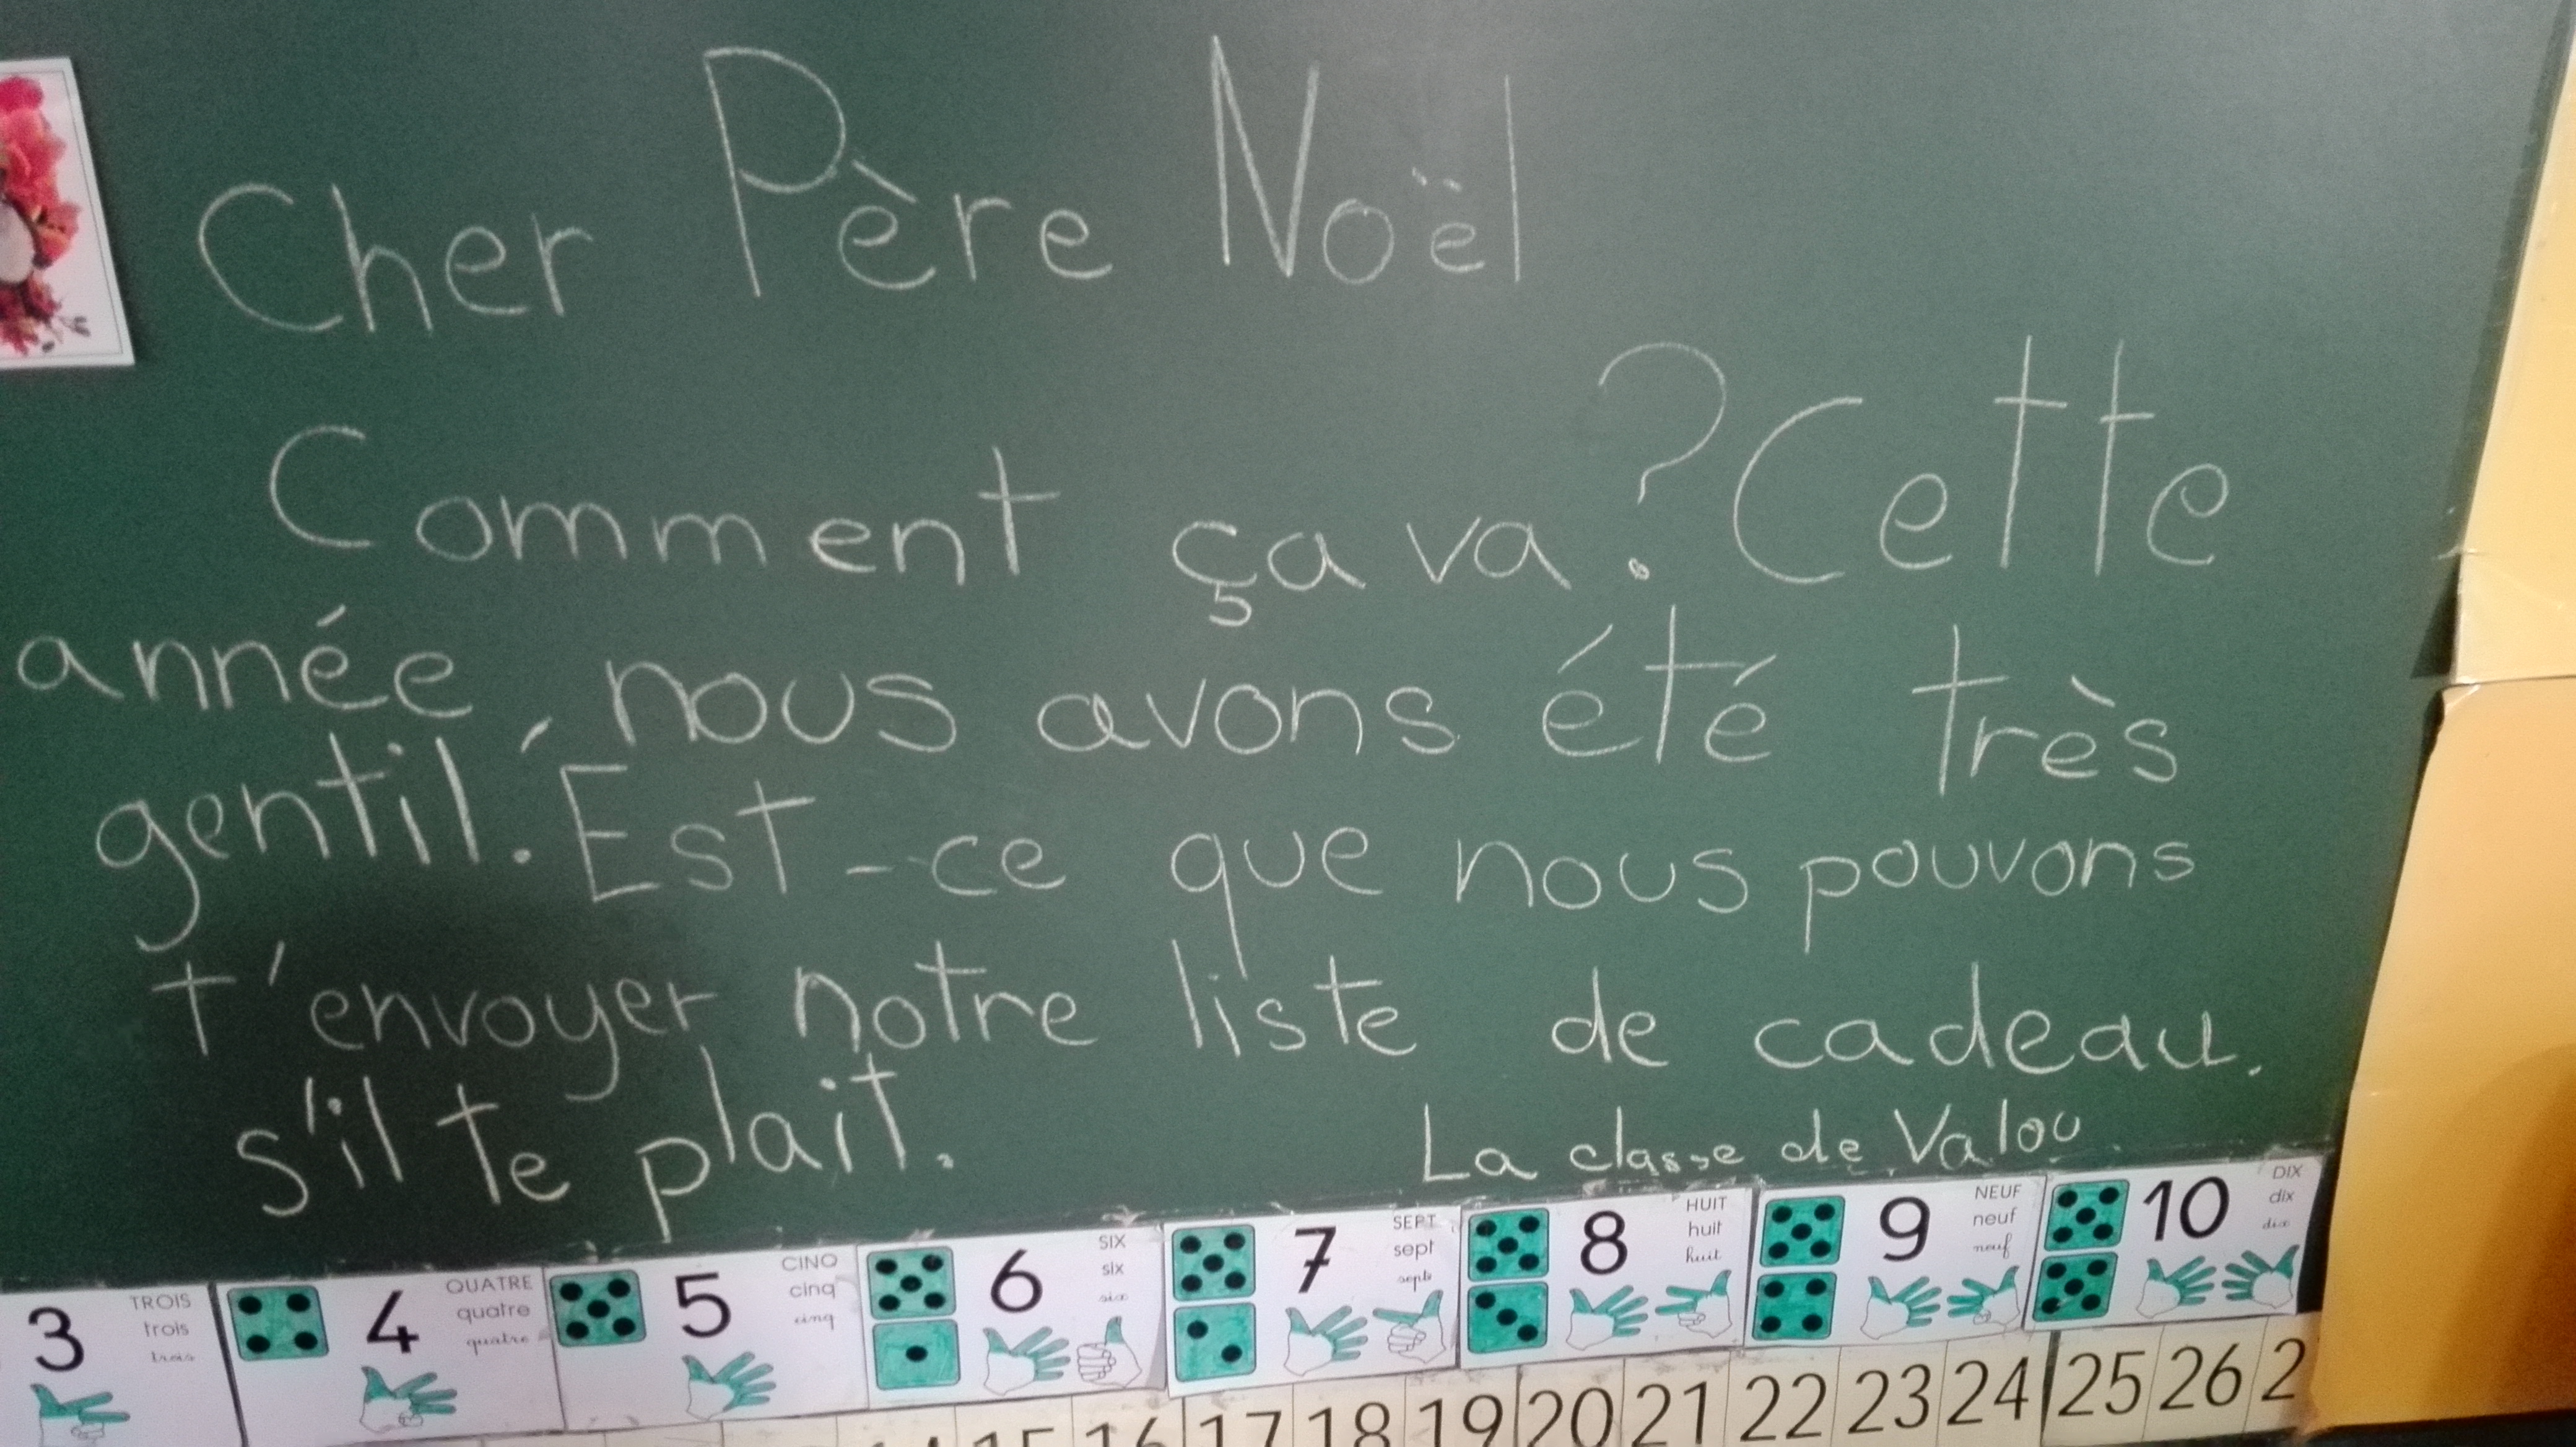 Cher Père Noël
Comment ça va ? Cette
année, nous avons été très
gentil. Est-ce que nous pouvons
t'envoyer notre liste de cadeau.
s'il te plait.
La classe de Valou
3 TROIS
trois
trois
4 QUATRE
quatre
quatre
5 CINQ
cinq
cinq
6 SIX
six
six
7 SEPT
sept
sept
8 HUIT
huit
huit
9 NEUF
neuf
neuf
10 DIX
dix
dix
16 17 18 19 20 21 22 23 24 25 26 2